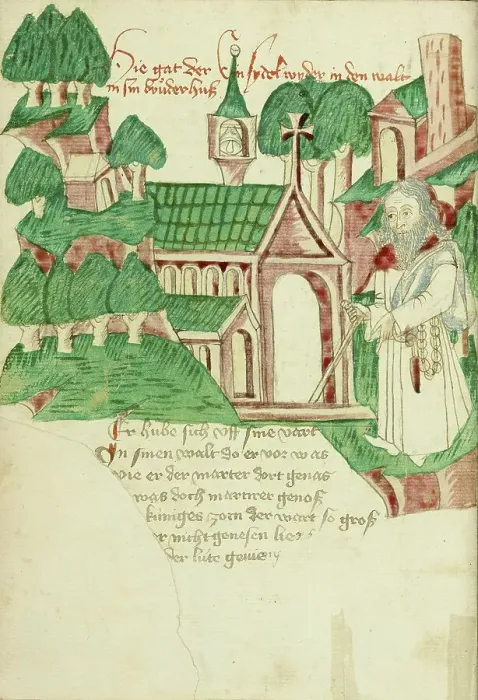 Hie gat der Einsydel wyder in den walt
in sin bruderhuß
Er hube sich vff sine vart
In sinen walt do er vor was
Wie er der marter dort genas
was doch martrer genoß
küniges zorn der wart so groß
r nicht genesen ließ
der lüte